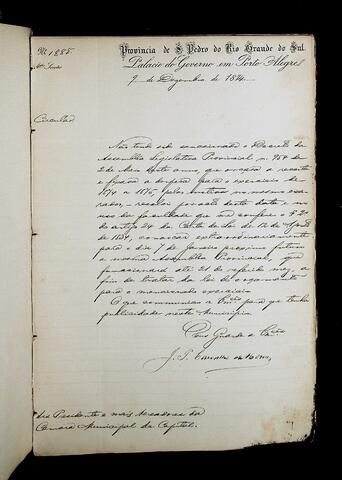 N. 1285.
Provincia de S. Pedro do Rio Grande do Sul.
Palacio do Governo em Porto Alegre
9 de Dezembro de 1874.
Circular
Não tendo sido sanccionado o Decreto da
Assembléa Legislativa Provincial n. 964 de
2 de Maio deste anno, que orçava a receita
e fixava a despesa para o exercicio de
1874 a 1875, pelos motivos no mesmo exa-
rados, resolvi por acto desta data e no
uso da faculdade que me confere o § 2º
do artigo 24 da Carta de Lei de 12 de Agosto
de 1834, convocar extraordinariamente
para o dia 7 de Janeiro proximo futuro
a mesma Assembléa Provincial, que
funccionará até 21 do referido mez, a
fim de tratar da lei do orçamento
para o mencionado exercicio.
O que communico a Vmces para que tenha
publicidade neste Municipio.
Deus Guarde a Vmces
Srs Presidente e mais Vereadores da
Camara Municipal da Capital.